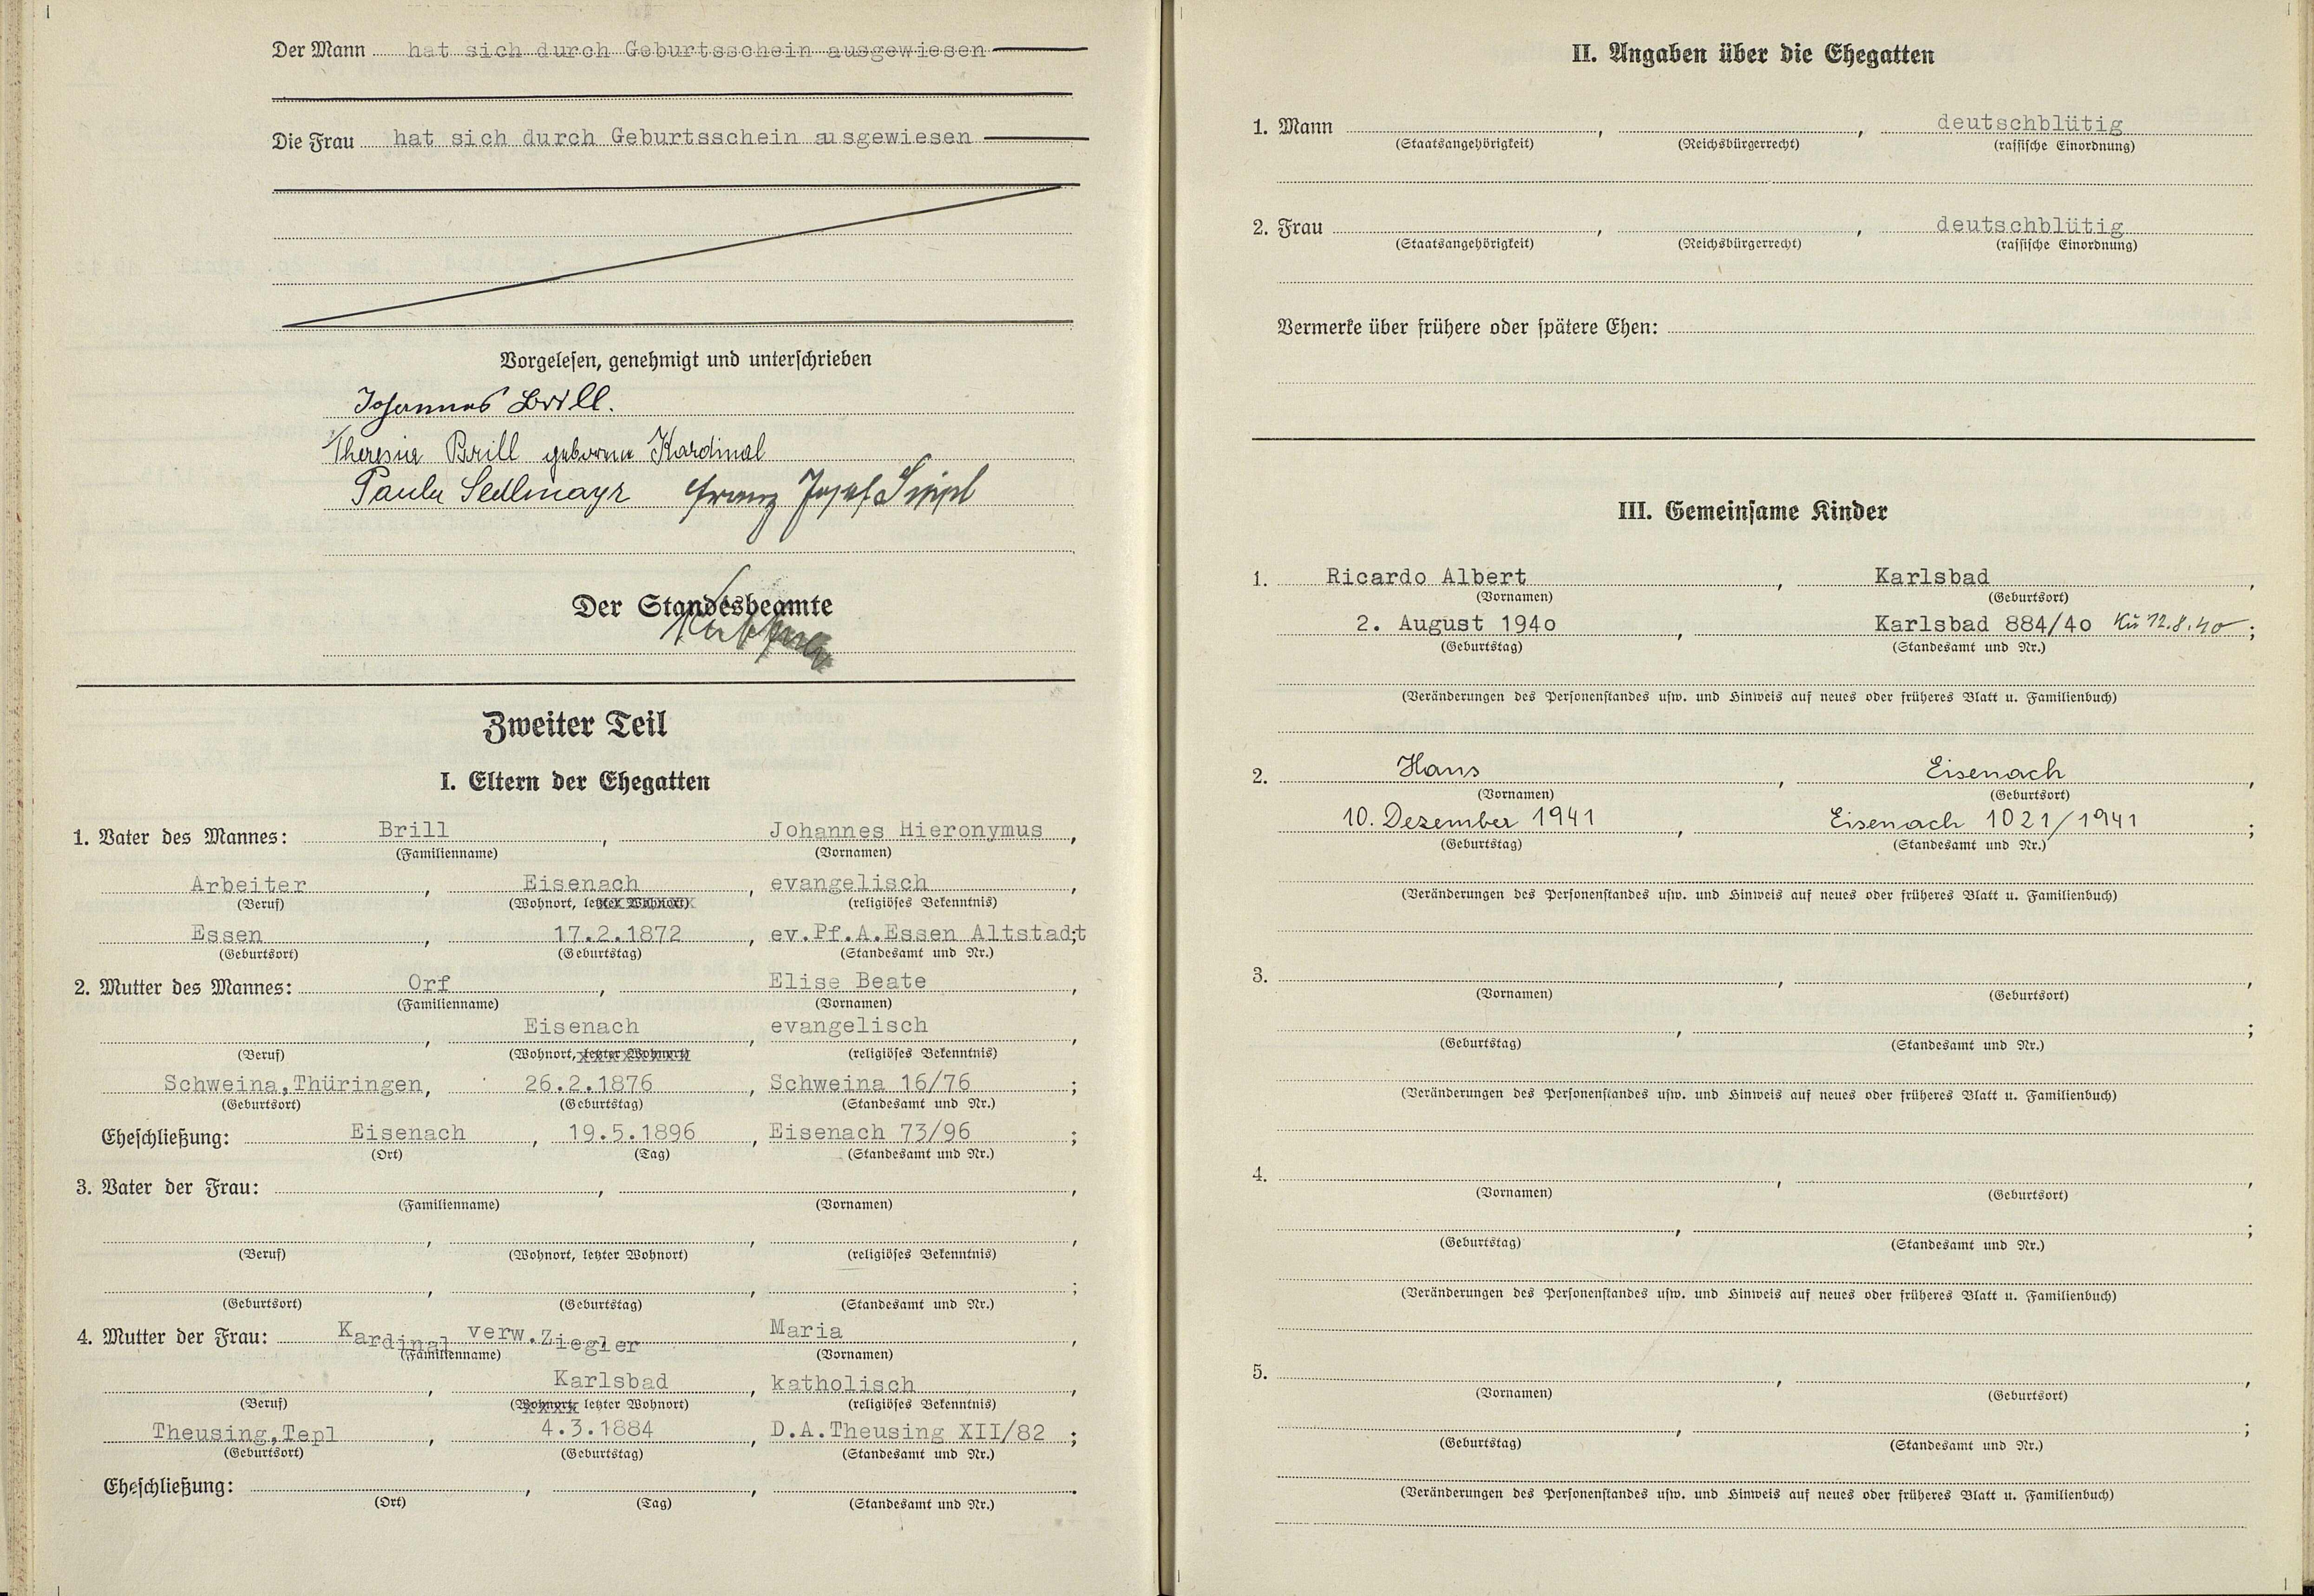 Der Mann hat sich durch Geburtsschein ausgewiesen
Die Frau hat sich durch Geburtsschein ausgewiesen
Vorgelesen, genehmigt und unterschrieben
Johannes Brill.
Theresia Brill geborene Kardinal
Paula Sedlmayr Franz Josef
Der Standesbeamte
Zweiter Teil
I. Eltern der Ehegatten
1. Vater des Mannes: Brill, Johannes Hieronymus,
(Familienname) (Vornamen)
Arbeiter, Eisenach, evangelisch,
(Beruf) (Wohnort, letzter Wohnort) (religiöses Bekenntnis)
Essen, 17.2.1872, ev.Pf.A.Essen Altstadt;
(Geburtsort) (Geburtstag) (Standesamt und Nr.)
2. Mutter des Mannes: Orf, Elise Beate,
(Familienname) (Vornamen)
, Eisenach, evangelisch,
(Beruf) (Wohnort, letzter Wohnort) (religiöses Bekenntnis)
Schweina,Thüringen, 26.2.1876, Schweina 16/76;
(Geburtsort) (Geburtstag) (Standesamt und Nr.)
Eheschließung: Eisenach, 19.5.1896, Eisenach 73/96;
(Ort) (Tag) (Standesamt und Nr.)
3. Vater der Frau: , ,
(Familienname) (Vornamen)
, , ,
(Beruf) (Wohnort, letzter Wohnort) (religiöses Bekenntnis)
, , ;
(Geburtsort) (Geburtstag) (Standesamt und Nr.)
4. Mutter der Frau: Kardinal verw.Ziegler Maria,
(Familienname) (Vornamen)
, Karlsbad, katholisch,
(Beruf) (Wohnort, letzter Wohnort) (religiöses Bekenntnis)
Theusing,Tepl, 4.3.1884, D.A.Theusing XII/82;
(Geburtsort) (Geburtstag) (Standesamt und Nr.)
Eheschließung: , , .
(Ort) (Tag) (Standesamt und Nr.)
II. Angaben über die Ehegatten
1. Mann , , deutschblütig
(Staatsangehörigkeit) (Reichsbürgerrecht) (rassische Einordnung)
2. Frau , , deutschblütig
(Staatsangehörigkeit) (Reichsbürgerrecht) (rassische Einordnung)
Vermerke über frühere oder spätere Ehen:
III. Gemeinsame Kinder
1. Ricardo Albert, Karlsbad,
(Vornamen) (Geburtsort)
2. August 1940, Karlsbad 884/40 Kü 12.8.40;
(Geburtstag) (Standesamt und Nr.)
(Veränderungen des Personenstandes usw. und Hinweis auf neues oder früheres Blatt u. Familienbuch)
2. Hans, Eisenach,
(Vornamen) (Geburtsort)
10. Dezember 1941, Eisenach 1021/1941;
(Geburtstag) (Standesamt und Nr.)
(Veränderungen des Personenstandes usw. und Hinweis auf neues oder früheres Blatt u. Familienbuch)
3. , ,
(Vornamen) (Geburtsort)
, ;
(Geburtstag) (Standesamt und Nr.)
(Veränderungen des Personenstandes usw. und Hinweis auf neues oder früheres Blatt u. Familienbuch)
4. , ,
(Vornamen) (Geburtsort)
, ;
(Geburtstag) (Standesamt und Nr.)
(Veränderungen des Personenstandes usw. und Hinweis auf neues oder früheres Blatt u. Familienbuch)
5. , ,
(Vornamen) (Geburtsort)
, ;
(Geburtstag) (Standesamt und Nr.)
(Veränderungen des Personenstandes usw. und Hinweis auf neues oder früheres Blatt u. Familienbuch)